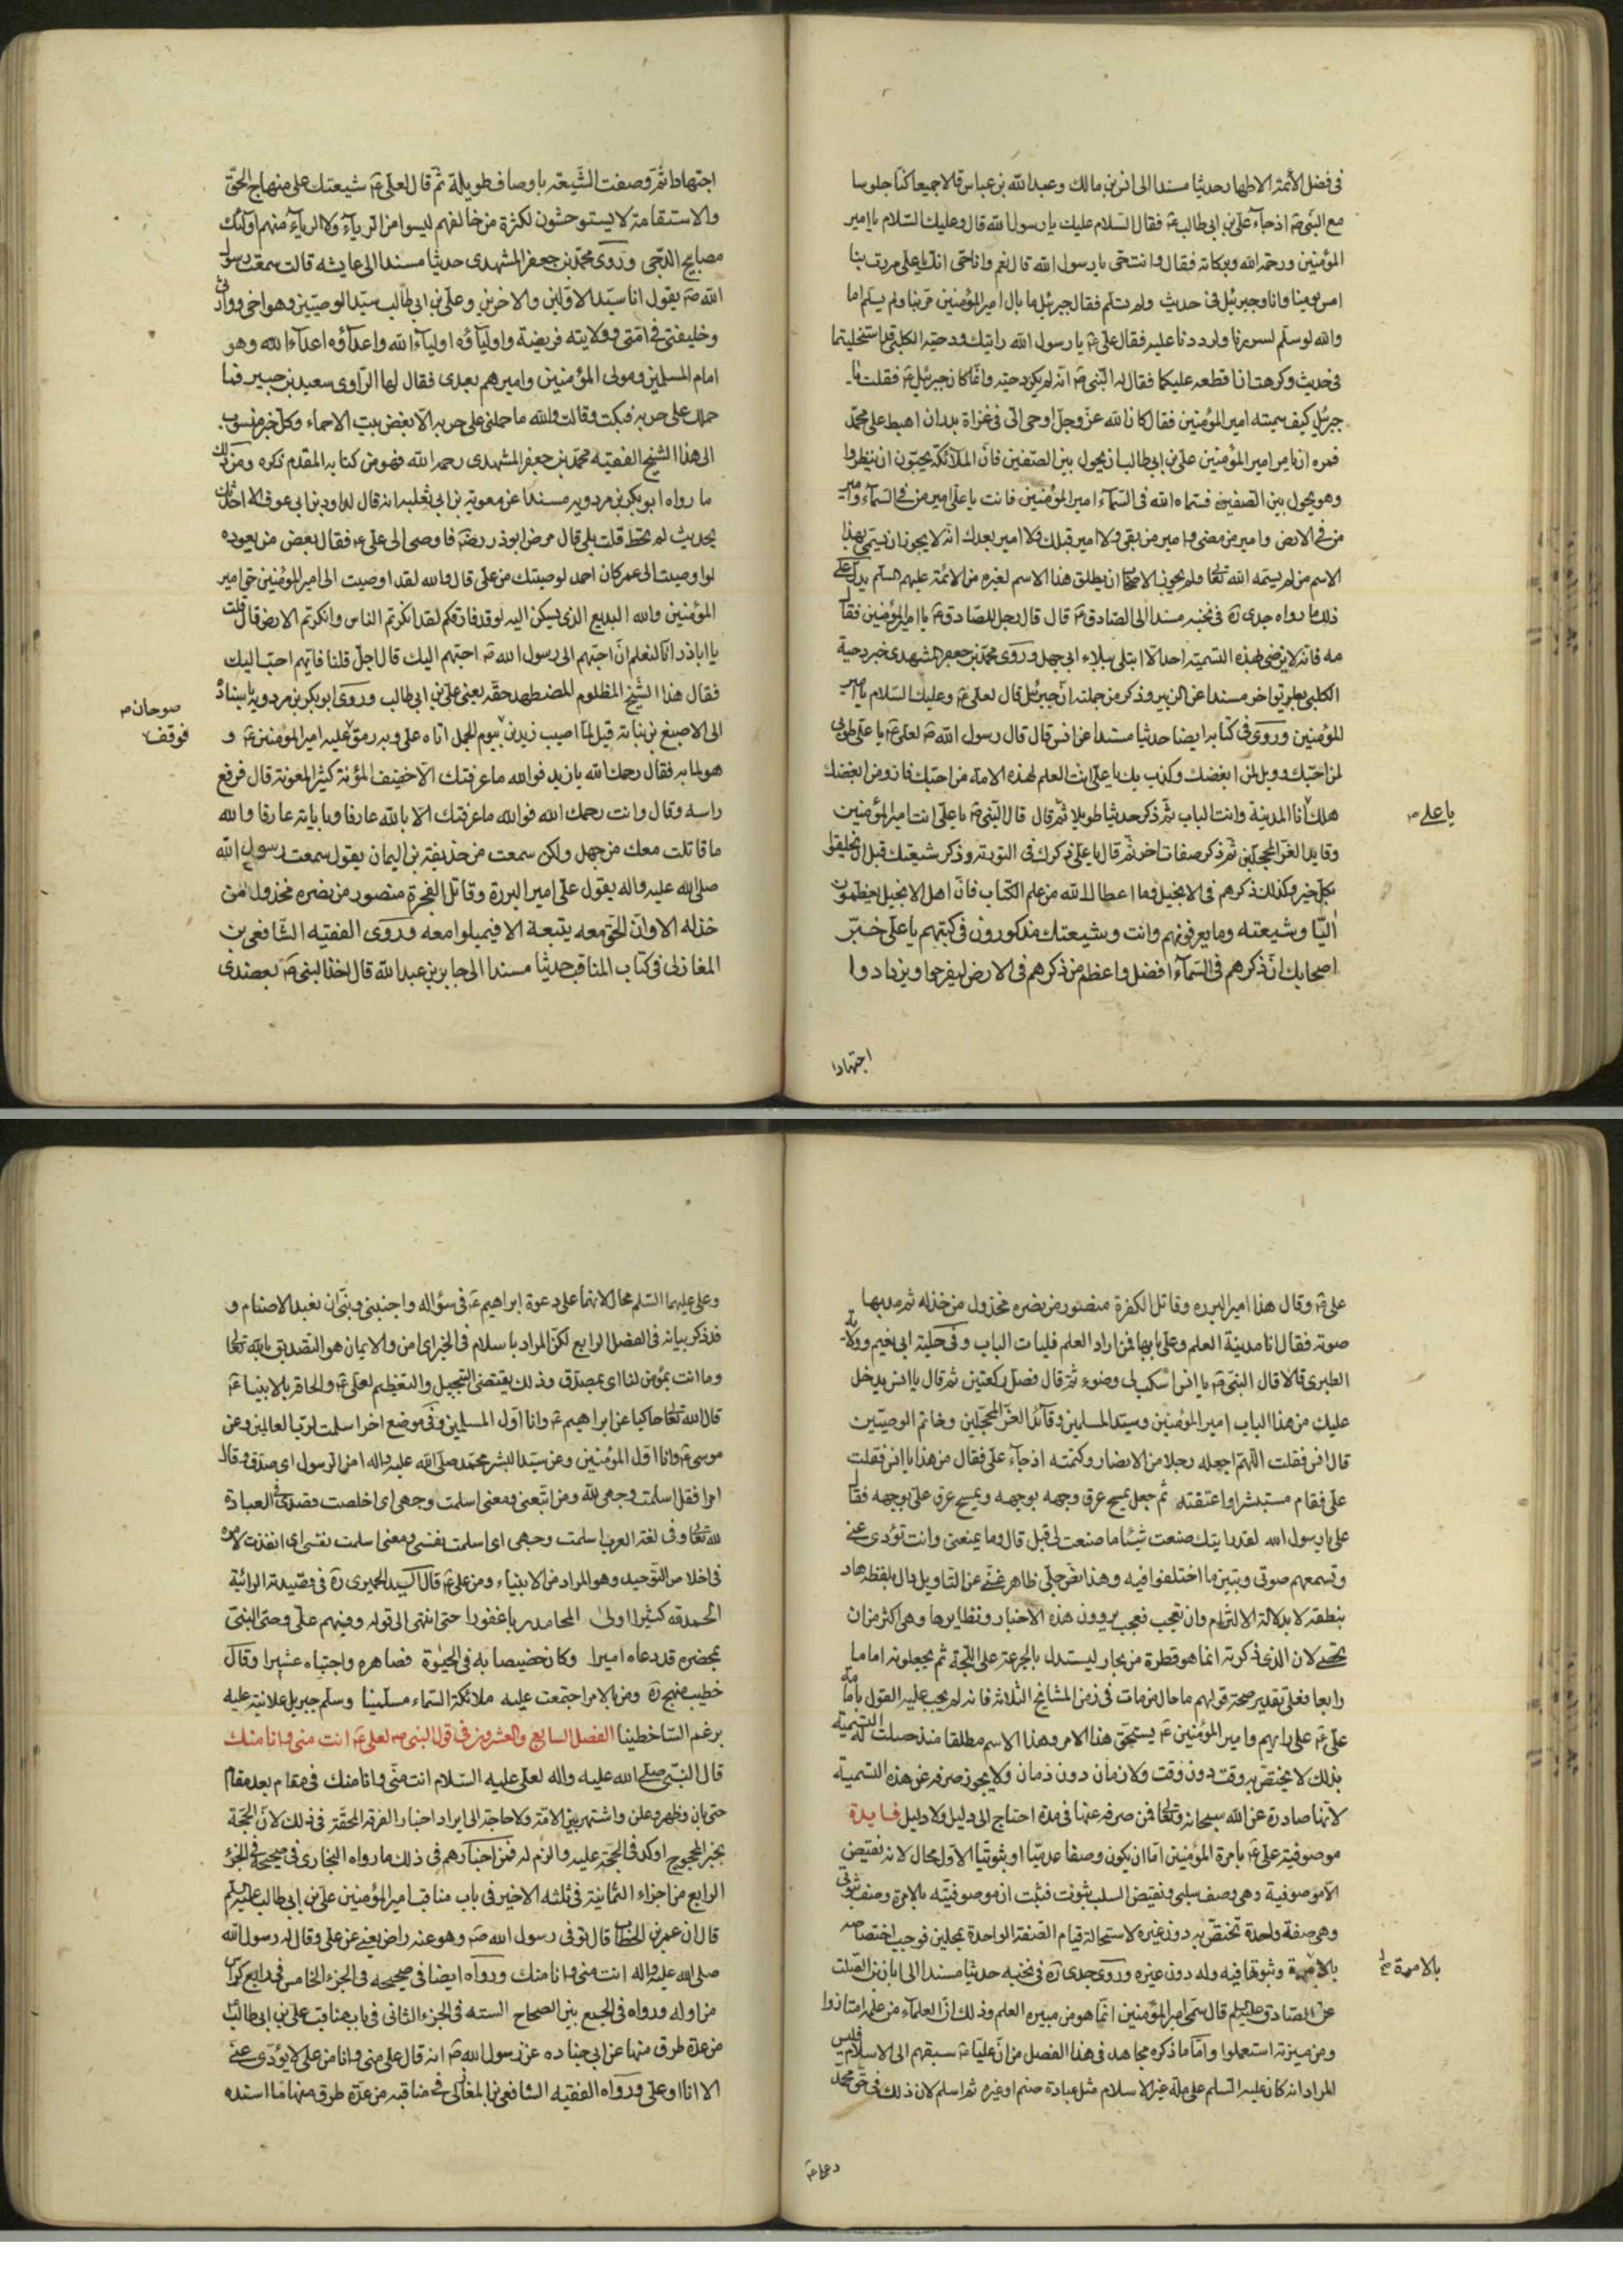 في فضل الأئمة الاطهار حديثا مسندا الى انس بن مالك وعبد الله بن عباس قالا جميعا كنا جلوسا
مع النبي ص اذ جاء علي بن ابي طالب ع فقال السلام عليك يا رسول الله قال وعليك السلام يا امير
المؤمنين ورحمة الله وبركاته فقال وانت حي يا رسول الله قال نعم وانا حي انك يا علي مررت بنا
امس يومنا وانا وجبرئيل في حديث ولم تسلم فقال جبرئيل ما بال امير المؤمنين مر بنا ولم يسلم اما
والله لو سلم لسررنا ولرددنا عليه فقال علي ع يا رسول الله رايتك ودحية الكلبي قد استخليتما
في حديث وكرهت ان اقطعه عليكما فقال له النبي ص انه لم يكن دحية وانما كان جبرئيل ع فقلت يا
جبرئيل كيف سميته امير المؤمنين فقال كان الله عز وجل اوحى الي في غزاة بدر ان اهبط على محمد
فمره ان يامر امير المؤمنين علي بن ابي طالب ان يجول بين الصفين فان الملائكة يحبون ان ينظروا
وهو يجول بين الصفين فسماه الله في السماء امير المؤمنين فانت يا علي امير من في السماء وامير
من في الارض وامير من مضى وامير من بقى ولا امير قبلك ولا امير بعدك انه لا يجوز ان يسمى بهذا
الاسم من لم يسمه الله تعالى ولم يجوز الاصحاب ان يطلق هذا الاسم لغيره من الائمة عليهم السلم يدل على
ذلك ما رواه جدى ره في نخبه مسندا الى الصادق ع قال قال رجل للصادق ع يا امير المؤمنين فقال
مه فانه لا يرضى بهذه التسمية احد الا ابتلى ببلاء ابي جهل وروى محمد بن جعفر المشهدى خبر دحية
الكلبي بطريق اخر مسندا عن الزبير وذكر من جملته ان جبرئيل قال لعلي ع وعليك السلام يا امير
المؤمنين وروى في كتابه ايضا حديثا مسندا عن انس قال قال رسول الله ص لعلي ع يا علي طوبى
لمن احبك وويل لمن ابغضك وكذب بك يا علي انت العلم لهذه الامة من احبك فاز ومن ابغضك
هلك انا المدينة وانت الباب ثم ذكر حديثا طويلا ثم قال قال النبي ص يا علي انت امير المؤمنين
يا علي ص
وقايد الغر المحجلين ثم ذكر صفات اخر ثم قال يا علي ذكرك في التورية وذكر شيعتك قبل ان يخلقوا
بكل خير وكذلك ذكرهم في الانجيل وما اعطاك الله من علم الكتاب فان اهل الانجيل يعظمون
اليا وشيعته وما يعرفونهم وانت وشيعتك مذكورون في كتبهم يا علي خبر
اصحابك ان ذكرهم في السماء افضل واعظم من ذكرهم في الارض ليفرحوا ويزدادوا
اجتهادا
اجتهادا ثم وصفت الشيعة باوصاف طويلة ثم قال لعلي ع شيعتك على منهاج الحق
والاستقامة لا يستوحشون لكثرة من خالفهم ليسوا من الرياء ولا الرياء منهم اولئك
مصابيح الدجى وروى محمد بن جعفر المشهدى حديثا مسندا الى عايشه قالت سمعت رسول
الله ص يقول انا سيد الاولين والاخرين وعلي بن ابي طالب سيد الوصيين وهو اخي ووارثي
وخليفتي في امتي وولايته فريضة واولياؤه اولياء الله واعداؤه اعداء الله وهو
امام المسلمين ومولى المؤمنين واميرهم بعدى فقال لها الراوى سعيد بن جبير فما
حملك على حربه فبكت وقالت والله ما حملني على حربه الا بغض بيت الاحماء وكل خبر منسوب
الى هذا الشيخ الفقيه محمد بن جعفر المشهدى رحمه الله فهو من كتابه المقدم ذكره ومن ذلك
ما رواه ابو بكر بن مردويه مسندا عن معوية بن ابي ثعلبه انه قال لداود بن ابي عوف الا احدثك
بحديث لم يختلط قلت بلى قال مرض ابو ذر رضه فاوصى الى علي ع فقال بعض من يعوده
لو اوصيت الى عمر كان احمد لوصيتك من علي قال والله لقد اوصيت الى امير المؤمنين حق امير
المؤمنين والله البديع الذى يسكن اليه لو قد فارقكم لقد انكرتم الناس وانكرتم الارض قال قلت
يا ابا ذر انا لنعلم ان احبهم الى رسول الله ص احبهم اليك قال اجل قلنا فايهم احب اليك
فقال هذا الشيخ المظلوم المضطهد حقه يعني علي بن ابي طالب وروى ابو بكر بن مردويه باسناده
الى الاصبغ بن نباته قيل لما اصيب زيد بن يوم الجمل اتاه علي وبه رمق عليه امير المؤمنين ع و
صوحان ص
فوقف
هو لما به فقال رحمك الله يا زيد فوالله ما عرفتك الا خفيف المؤنة كثير المعونة قال فرفع
راسه وقال وانت رحمك الله فوالله ما عرفتك الا بالله عارفا وباياته عارفا والله
ما قاتلت معك من جهل ولكن سمعت من حذيفة بن اليمان يقول سمعت رسول الله
صلى الله عليه واله يقول علي امير البررة وقاتل الفجرة منصور من نصره مخذول من
خذله الا وان الحق معه يتبعه الا فميلوا معه وروى الفقيه الشافعي بن
المغازلى في كتاب المناقب حديثا مسندا الى جابر بن عبد الله قال اخذ النبي ص بعضدى
علي ع وقال هذا امير البرره وقاتل الكفرة منصور من نصره مخذول من خذله ثم مد بها
صوته فقال انا مدينة العلم وعلي بابها فمن اراد العلم فليات الباب وفي حلية ابي نعيم وولاية
الطبرى قالا قال النبي ص يا انس اسكب لى وضوء ثم قال فصلى ركعتين ثم قال يا انس يدخل
عليك من هذا الباب امير المؤمنين وسيد المسلمين وقائد الغر المحجلين وخاتم الوصيين
قال انس فقلت اللهم اجعله رجلا من الانصار وكتمته اذ جاء علي فقال من هذا يا انس فقلت
علي فقام مستبشرا واعتنقه ثم جعل يمسح عرق وجهه بوجهه ويمسح عرق علي بوجهه فقال
علي يا رسول الله لقد رايتك صنعت شيئا ما صنعت لى قبل قال وما يمنعني وانت تؤدى عني
وتسمعهم صوتي وتبين ما اختلفوا فيه وهذا نص جلي ظاهر غني عن التاويل دال بلفظه هاد
بنطقه لا بدلالة الالتزام وان تعجب فعجب يروون هذه الاخبار ونظايرها وهي اكثر من ان
تحصى لان الذى ذكرته انما هو قطرة من بحار ليستدل بالجرعة على اللجة ثم يجعلونه اماما
رابعا فعلى تقدير صحة قولهم ما حال من مات في زمن المشايخ الثلاثة فانه لم يجب عليه القول بامامة
علي ع على رايهم وامير المؤمنين ع يستحق هذا الامر وهذا الاسم مطلقا منذ حصلت له التسمية
بذلك لا يختص به وقت دون وقت ولا زمان دون زمان ولا يجوز صرفه عن هذه التسمية
لانها صادرة عن الله سبحانه وتعالى فمن صرفه عنها في مدة احتاج الى دليل ولا دليل فايدة
موصوفية علي ع بامرة المؤمنين اما ان يكون وصفا عدميا او ثبوتيا الاول محال لانه نقيض
الاموصوفية وهي وصف سلبي ونقيض السلب ثبوت فثبت ان موصوفيته بالامرة وصف ثبوتي
وهي صفة واحدة تختص به دون غيره لاستحالة قيام الصفة الواحدة بمحلين فوجب اختصاصه
بالامرة وثبوتها فيه وله دون غيره وروى جدى ره في نخبه حديثا مسندا الى ابان بن الصلت
بالامرة صح
عن الصادق عليه السلم قال سمى امير المؤمنين انما هو من ميره العلم وذلك ان العلماء من علمه امتازوا
ومن ميرته استعملوا واما ما ذكره مجاهد في هذا الفصل من ان عليا ع سبقهم الى الاسلام فليس
المراد انه كان عليه السلم على ملة غير الاسلام مثل عبادة صنم او غيره ثم اسلم لان ذلك في حق محمد
وعلي ع
وعلي عليهما السلم محال لانهما على دعوة ابراهيم ع في سؤاله واجنبني وبني ان نعبد الاصنام و
قد ذكر بيانه في الفصل الرابع لكن المراد باسلام في الخبر اى امن والايمان هو التصديق بالله تعالى
وما انت بمؤمن لنا اى بمصدق وذلك يقتضى التبجيل والتعظيم لعلي ع والحاقه بالانبياء ع
قال الله تعالى حاكيا عن ابراهيم ع وانا اول المسلمين وفي موضع اخر اسلمت لرب العالمين وعن
موسى ع وانا اول المؤمنين وعن سيد البشر محمد صلى الله عليه واله امن الرسول اى صدق وقال
امرا فقل اسلمت وجهي لله ومن اتبعني ومعنى اسلمت وجهى اى اخلصت قصدى في العبادة
لله تعالى وفي لغة العرب اسلمت وجهى اى اسلمت نفسى ومعنى اسلمت نفسى اى انقذت لامره
في اخلاص التوحيد وهو المراد من الانبياء ومن علي ع قال السيد الحميرى ره في قصيدته الرائية
الحمد لله كثيرا اولى المحامد رباغفورا حتى انتهى الى قوله وفيهم علي وصى النبي
بمحضره قد دعاه اميرا وكان خصيصا به في الحيوة فصاهره واجتباه عشيرا وقال
خطيب منبج ره ومن بالامر اجتمعت عليه ملائكة السماء مسلمينا وسلم جبريل علانية عليه
برغم الساخطينا الفصل السابع والعشرون في قول النبي ص لعلي ع انت مني وانا منك
قال النبي صلى الله عليه واله لعلي عليه السلام انت مني وانا منك في مقام بعد مقام
حتى بان وظهر وعلن واشتهر بين الامة ولا حاجة الى ايراد اخبار الفرقة المحقة في ذلك لان الحجة
بخبر المحجوج اوكد في الحجة عليه والزم له فمن اخبارهم في ذلك ما رواه البخارى في صحيحه في الجزء
الرابع من اجزاء الثمانية في ثلثه الاخير في باب مناقب امير المؤمنين علي بن ابي طالب عليه السلم
قال ان عمر بن الخطاب قال توفي رسول الله ص وهو عنه راض يعني عن علي وقال له رسول الله
صلى الله عليه واله انت مني وانا منك ورواه ايضا في صحيحه في الجزء الخامس في رابع كراس
من اوله ورواه في الجمع بين الصحاح السته في الجزء الثاني في باب مناقب علي بن ابي طالب
من عدة طرق منها عن ابي جناده عن رسول الله ص انه قال علي مني وانا من علي لا يؤدى عني
الا انا او علي ورواه الفقيه الشافعي بن المغازلى في مناقبه من عدة طرق منها ما اسنده